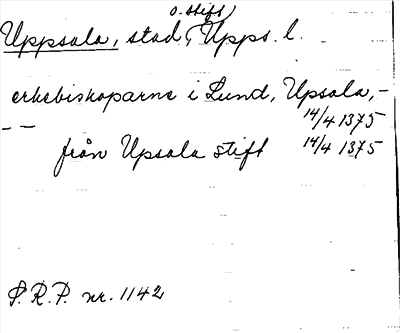 Uppsala, stad, Upps. l.
o. stift,
erkebiskoparne i Lund, Upsala, -
- - 14/4 1375
från Upsala stift 14/4 1375
S.R.P. nr. 1142